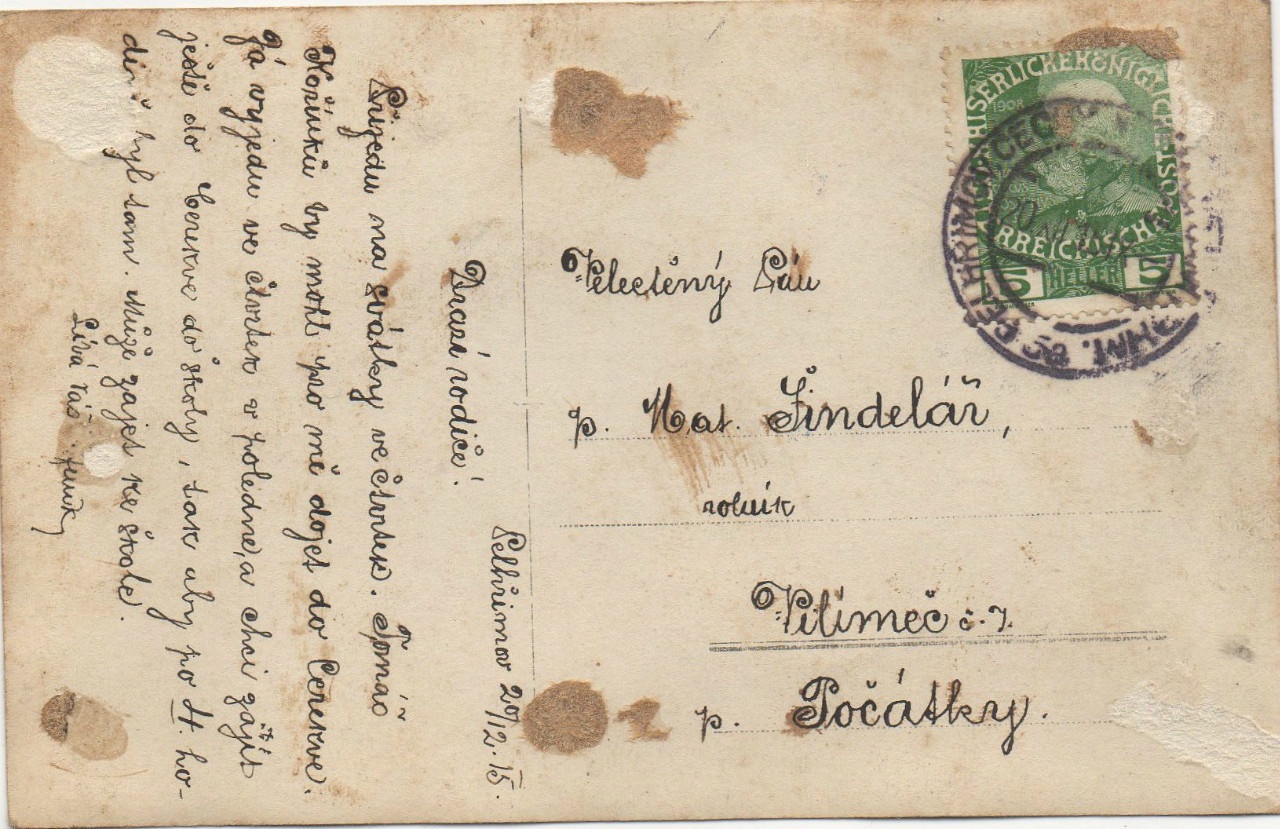 Pelhřimov 20/12. 15.
Drazí rodiče!
Přijedu na svátky ve čtvrtek. Tomáš
Kořínků by mohl pro mě dojet do Cerekve.
Já vyjedu ve čtvrtek v poledne, a chci zajít
ještě do Cerekve do školy, tak aby po 4. ho-
dině byl tam. Může zajet ke škole.
Líbá Vás
Velectěný Pán
p. Mat. Šindelář,
rolník
Vilímeč č. 7.
p. Počátky.
KAISERLICHEKÖNIGLICHE ÖSTERREICHISCHE
1908
5 HELLER 5
PELHŘIMOV